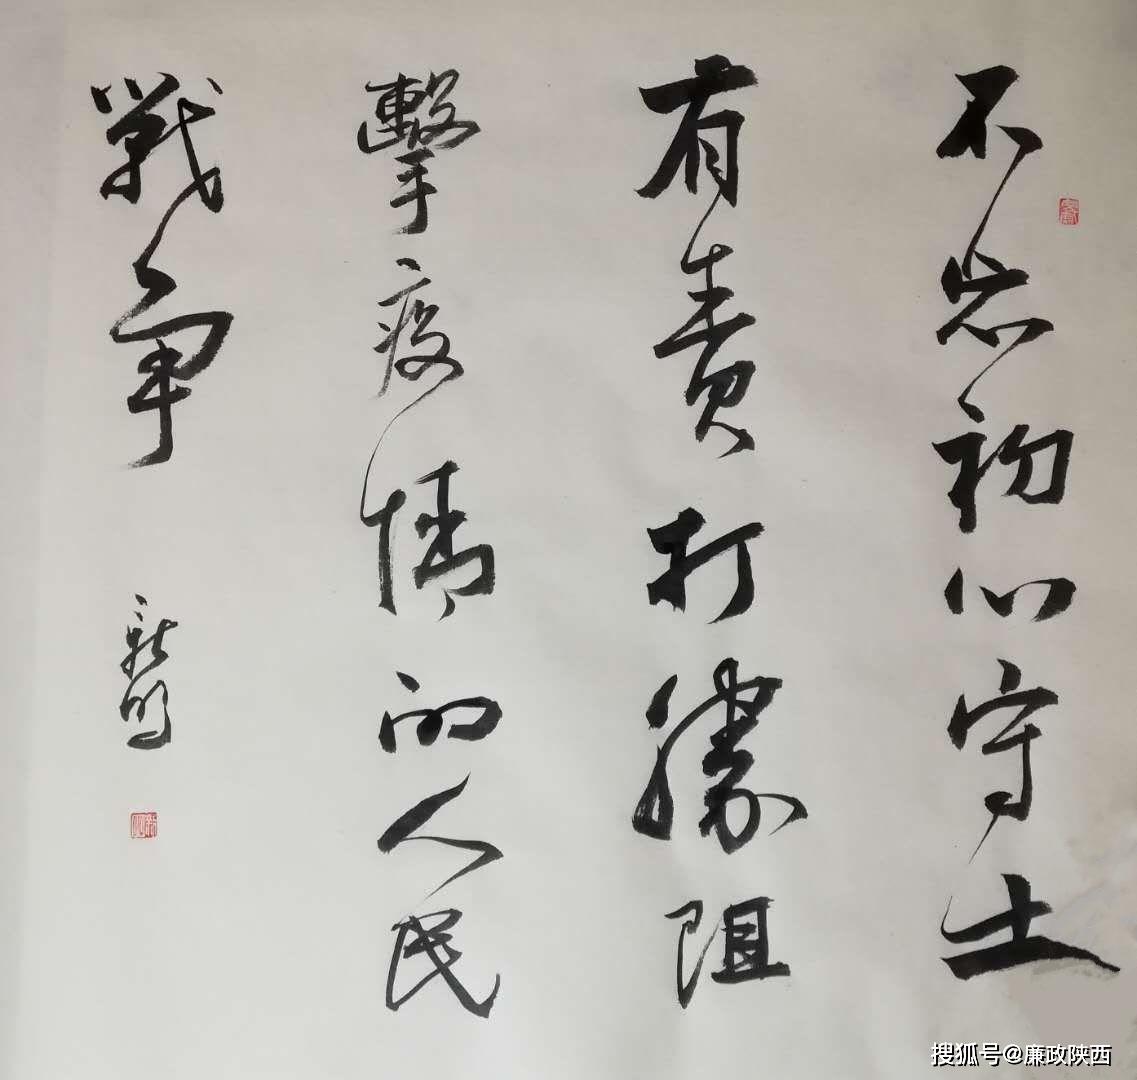 不忘初心守土
有责打勝阻
擊疫情的人民
戰争
新明
搜狐号@廉政陕西